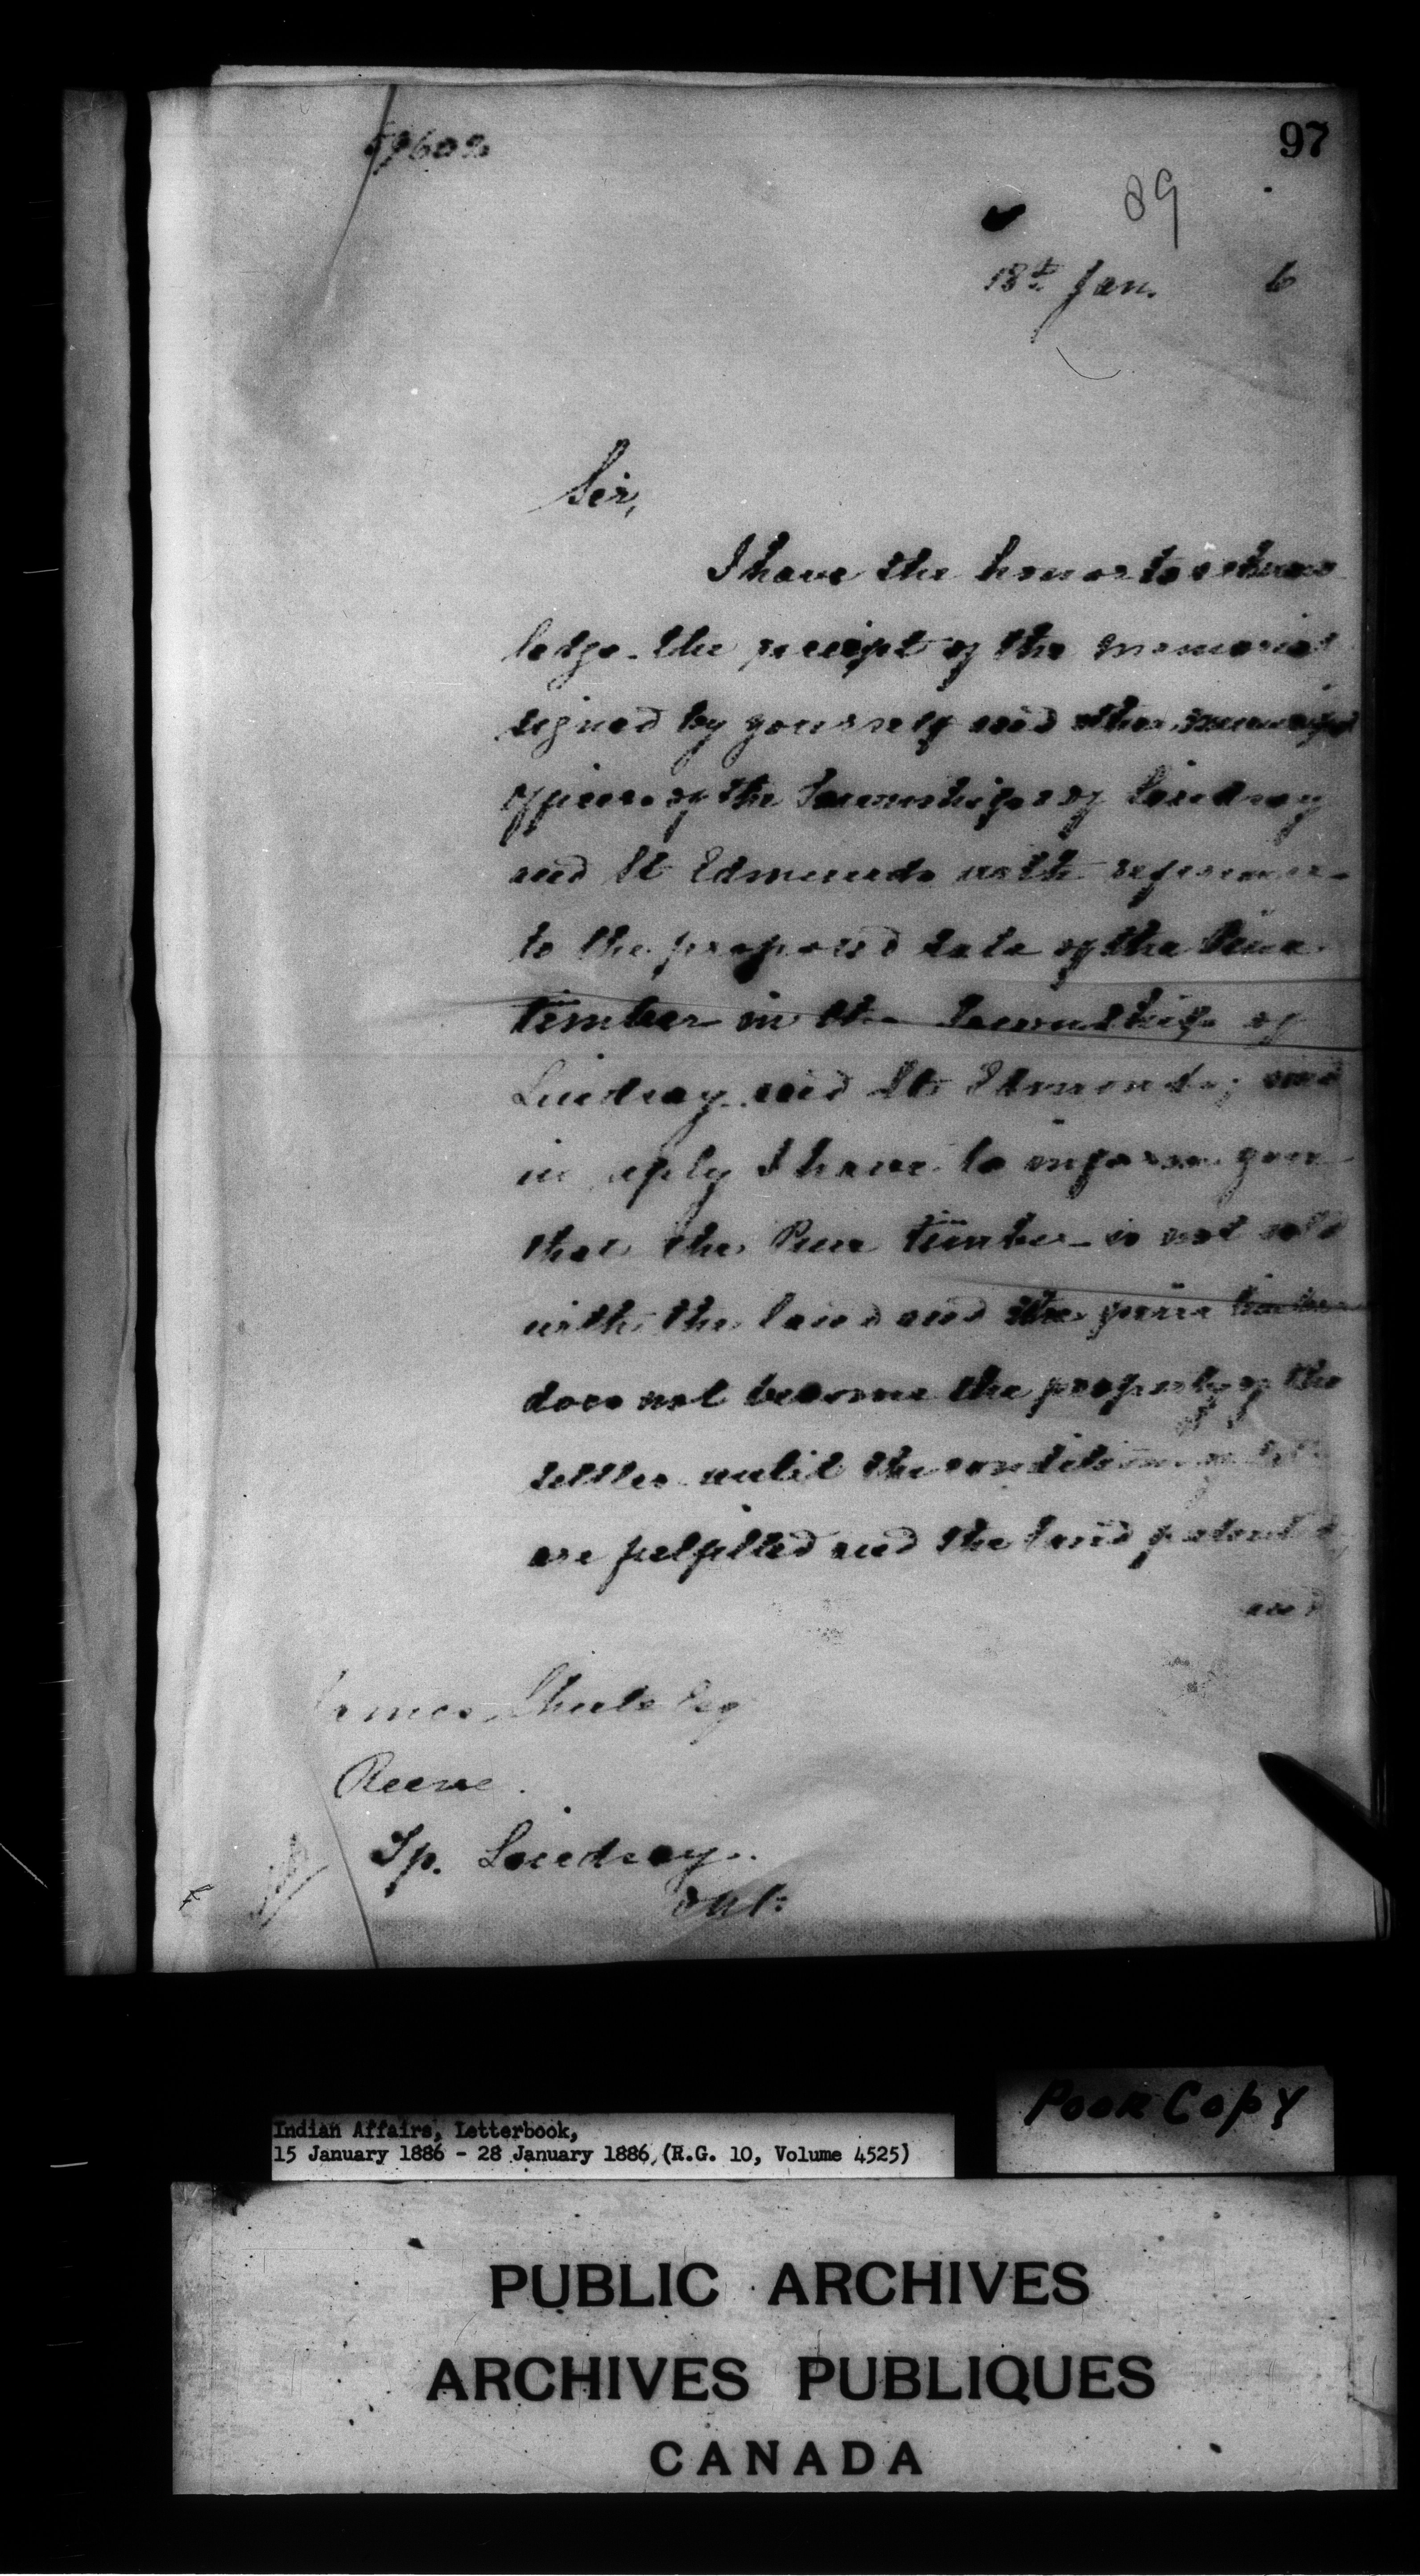 97
89
18th Jan. 6
Sir,
I have the honor to acknow
ledge the receipt of the memorial
signed by yourself and other municipal
officers of the Townships of Lindsay
and St Edmunds with reference
to the proposed sale of the Pine
timber in the Township of
Lindsay and St Edmonds; and
in reply I have to inform you
that the Pine timber is not sold
with the land and the pine timber
does not become the property of the
settler until the conditions of
are fulfilled and the land patented,
and
James Esq
Reeve.
Tp. Lindsay.
Ont:
Poor Copy
Indian Affairs, Letterbook,
15 January 1886 - 28 January 1886, (R.G. 10, Volume 4525)
PUBLIC ARCHIVES
ARCHIVES PUBLIQUES
CANADA